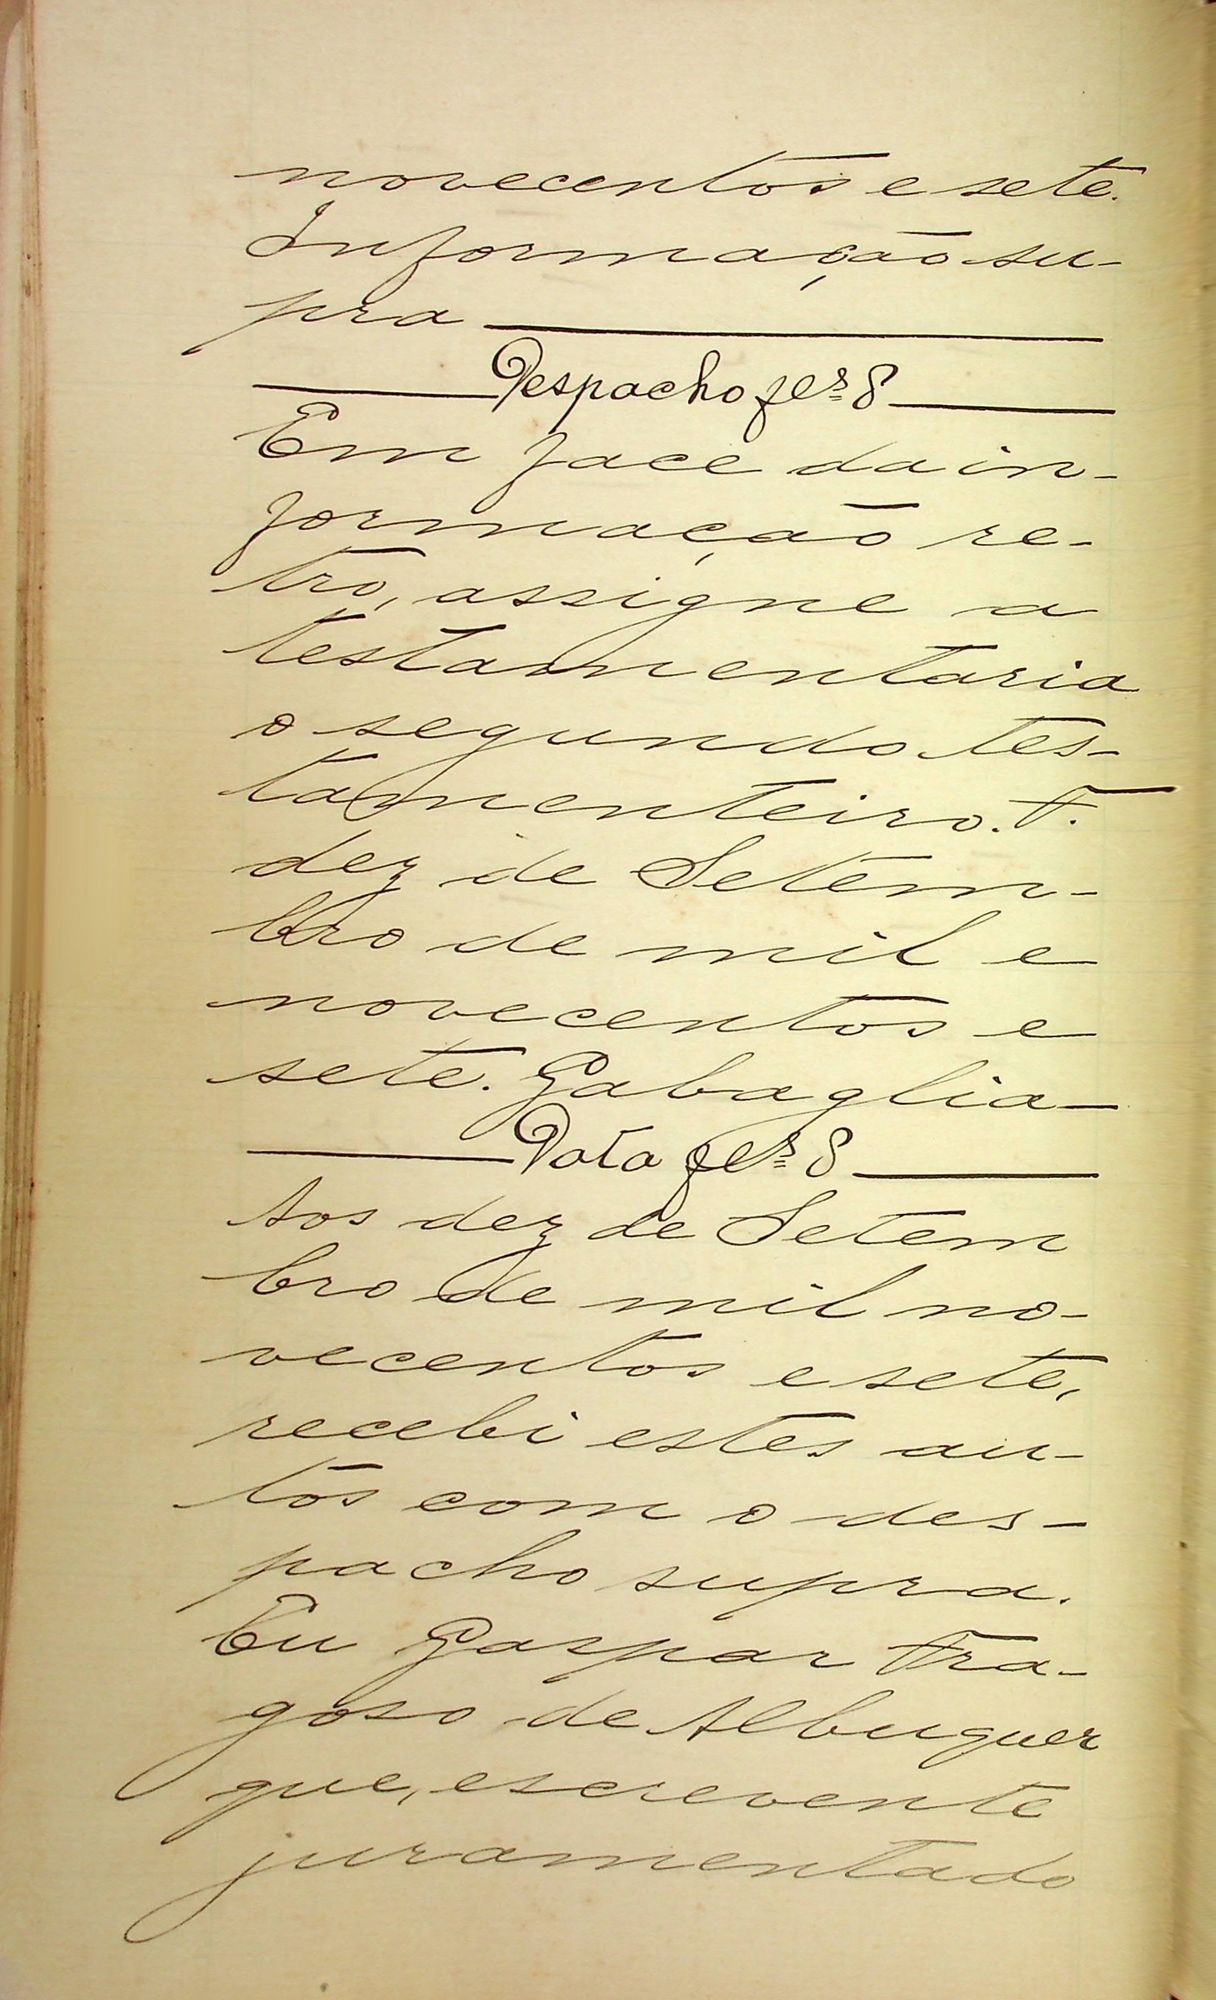 novecentos e sete.
Informação su-
pra
Despacho fls 8
Em face da in-
formação re-
tro, assigne a
testamentaria
o segundo tes-
tamenteiro. F.
dez de Setem-
bro de mil e
novecentos e
sete. Gabaglia
Data fls 8
Aos dez de Setem
bro de mil no-
vecentos e sete,
recebi estes au-
tos com o des-
pacho supra.
Eu Gaspar Fra-
goso de Albuquer
que, escrevente
juramentado